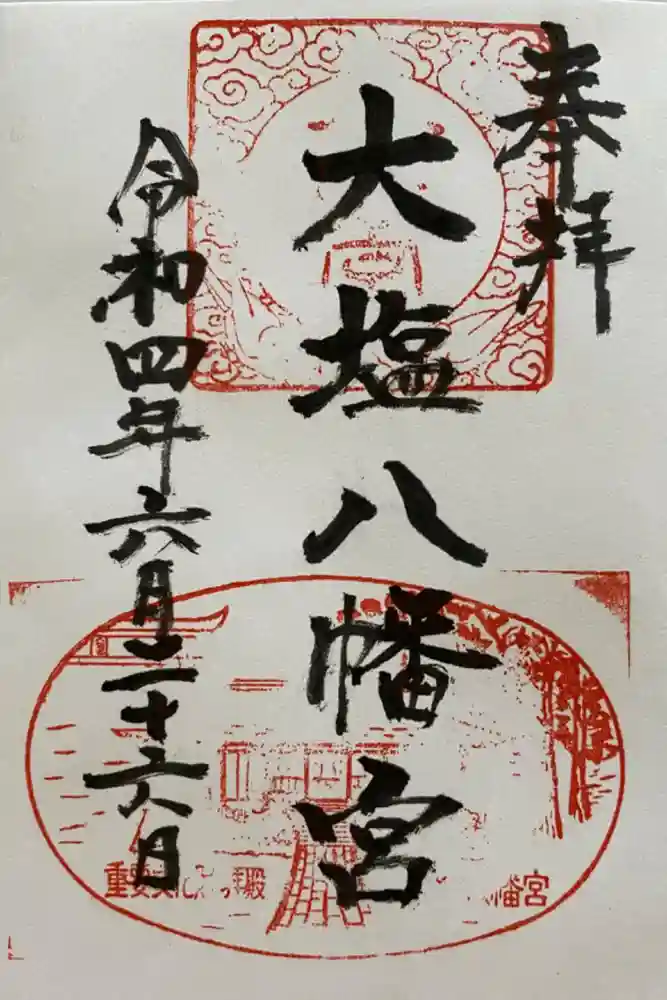 奉拝
大塩八幡宮
令和四年六月二十六月
重要文化
殿
幡宮